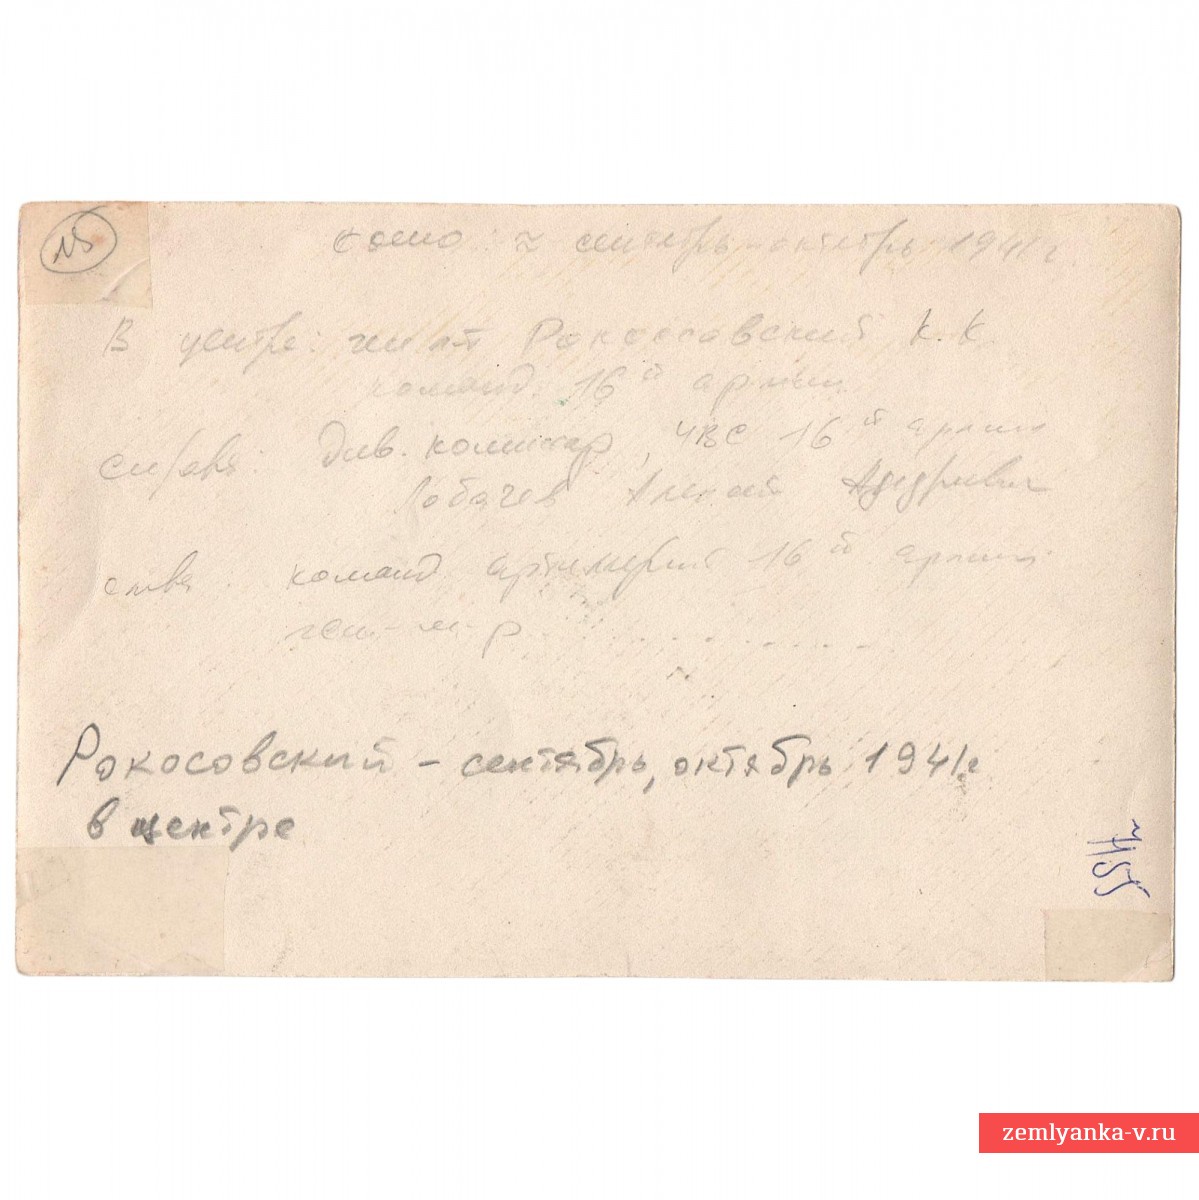 15
сентябрь-октябрь 1941г.
В центре: ген. лт Рокоссовский К.К
команд. 16й армии
справа: Див. комиссар, ЧВС 16й армии
Лобачев Алексей
слева. команд артиллерией 16й армии
ген-м-р . . . . . . . . . .
Рокосовский - сентябрь, октябрь 1941г
в центре
zemlyanka-v.ru